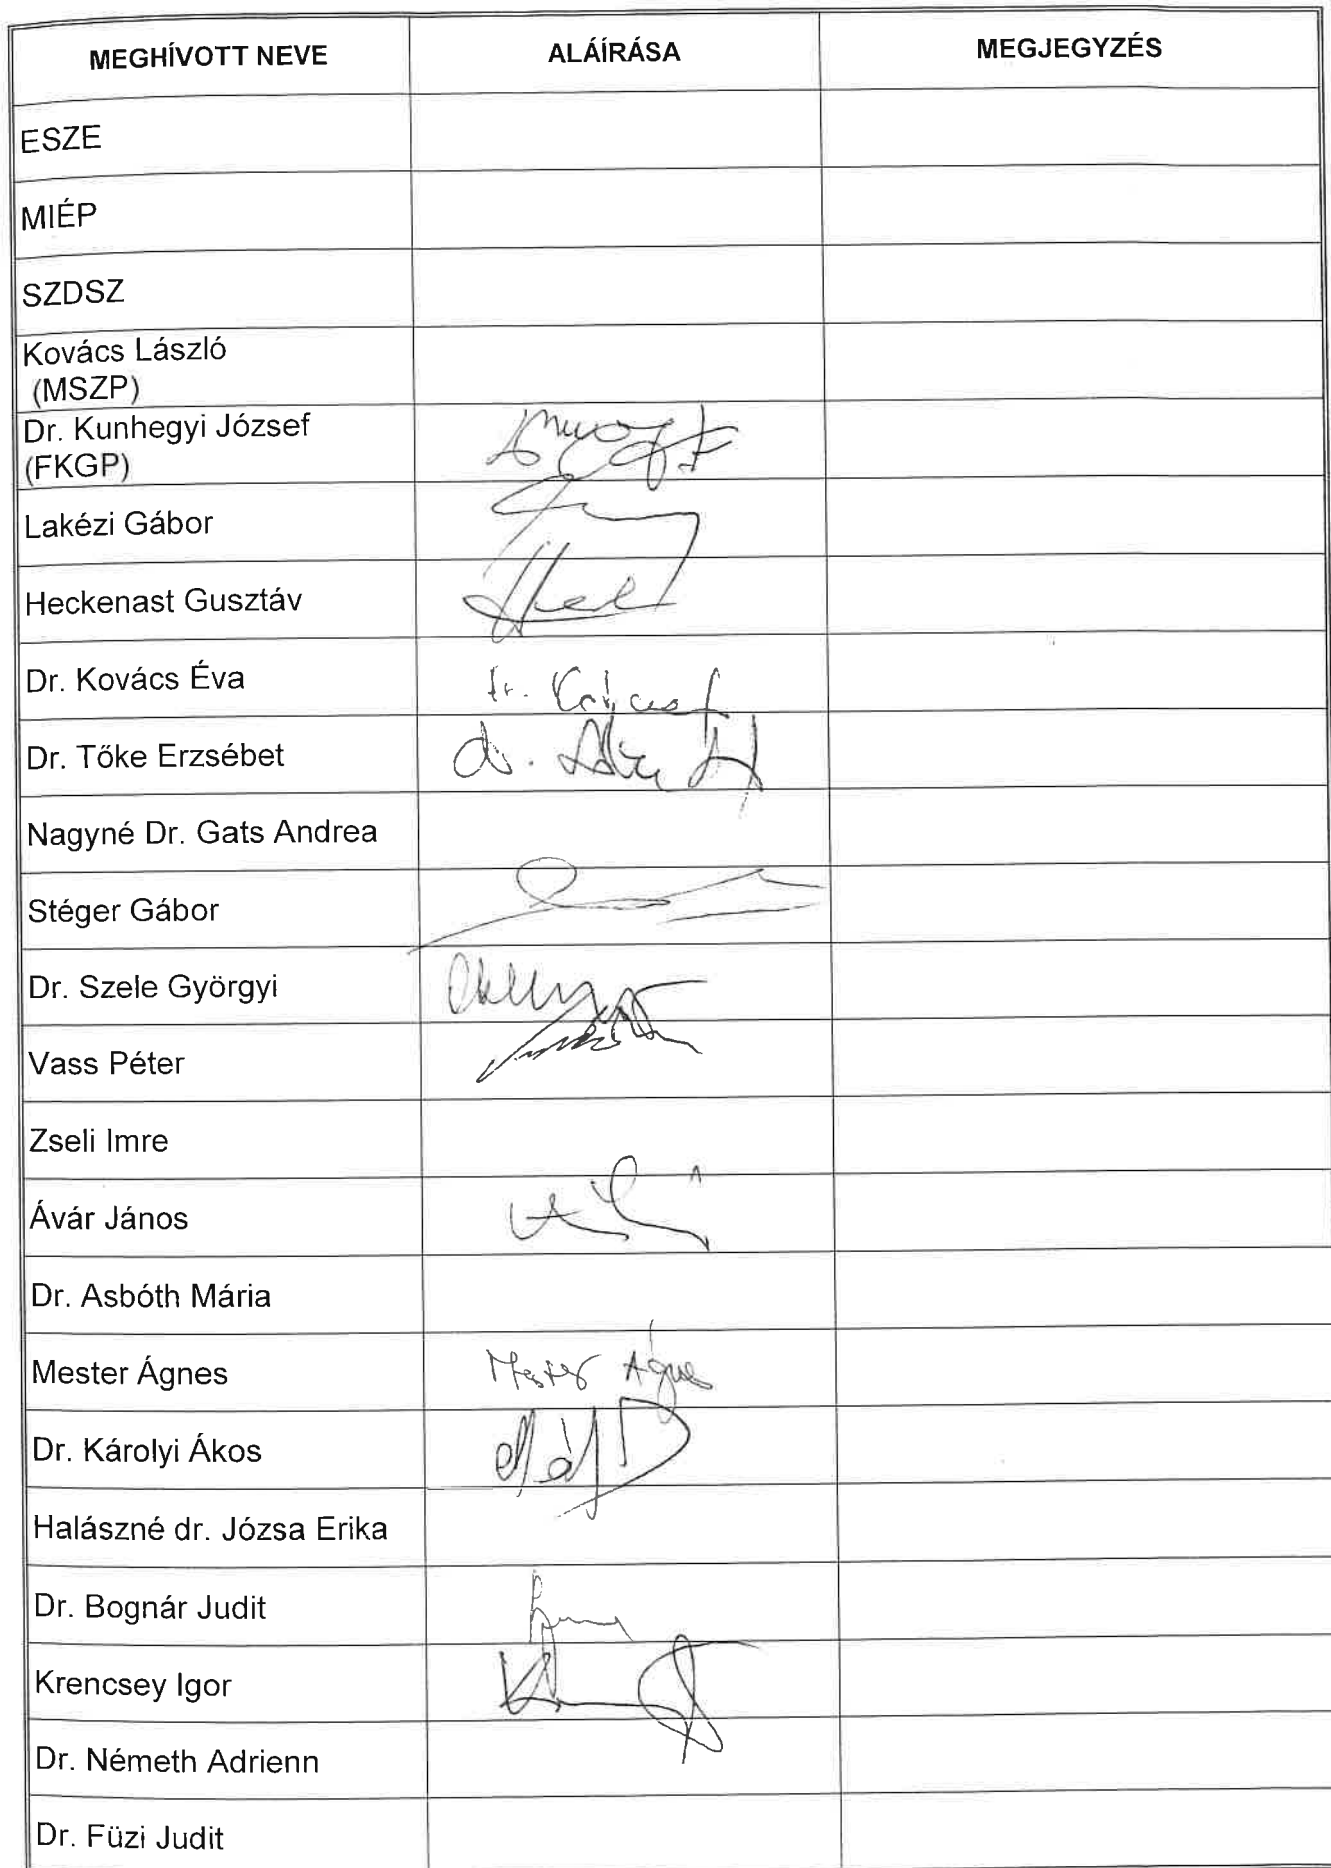 MEGHÍVOTT NEVE ALÁÍRÁSA MEGJEGYZÉS
ESZE
MIÉP
SZDSZ
Kovács László
(MSZP)
Dr. Kunhegyi József
(FKGP)
Lakézi Gábor
Heckenast Gusztáv
Dr. Kovács Éva
Dr. Tőke Erzsébet
Nagyné Dr. Gats Andrea
Stéger Gábor
Dr. Szele Györgyi
Vass Péter
Zseli Imre
Ávár János
Dr. Asbóth Mária
Mester Ágnes Mester Ágnes
Dr. Károlyi Ákos
Halászné dr. Józsa Erika
Dr. Bognár Judit
Krencsey Igor
Dr. Németh Adrienn
Dr. Füzi Judit